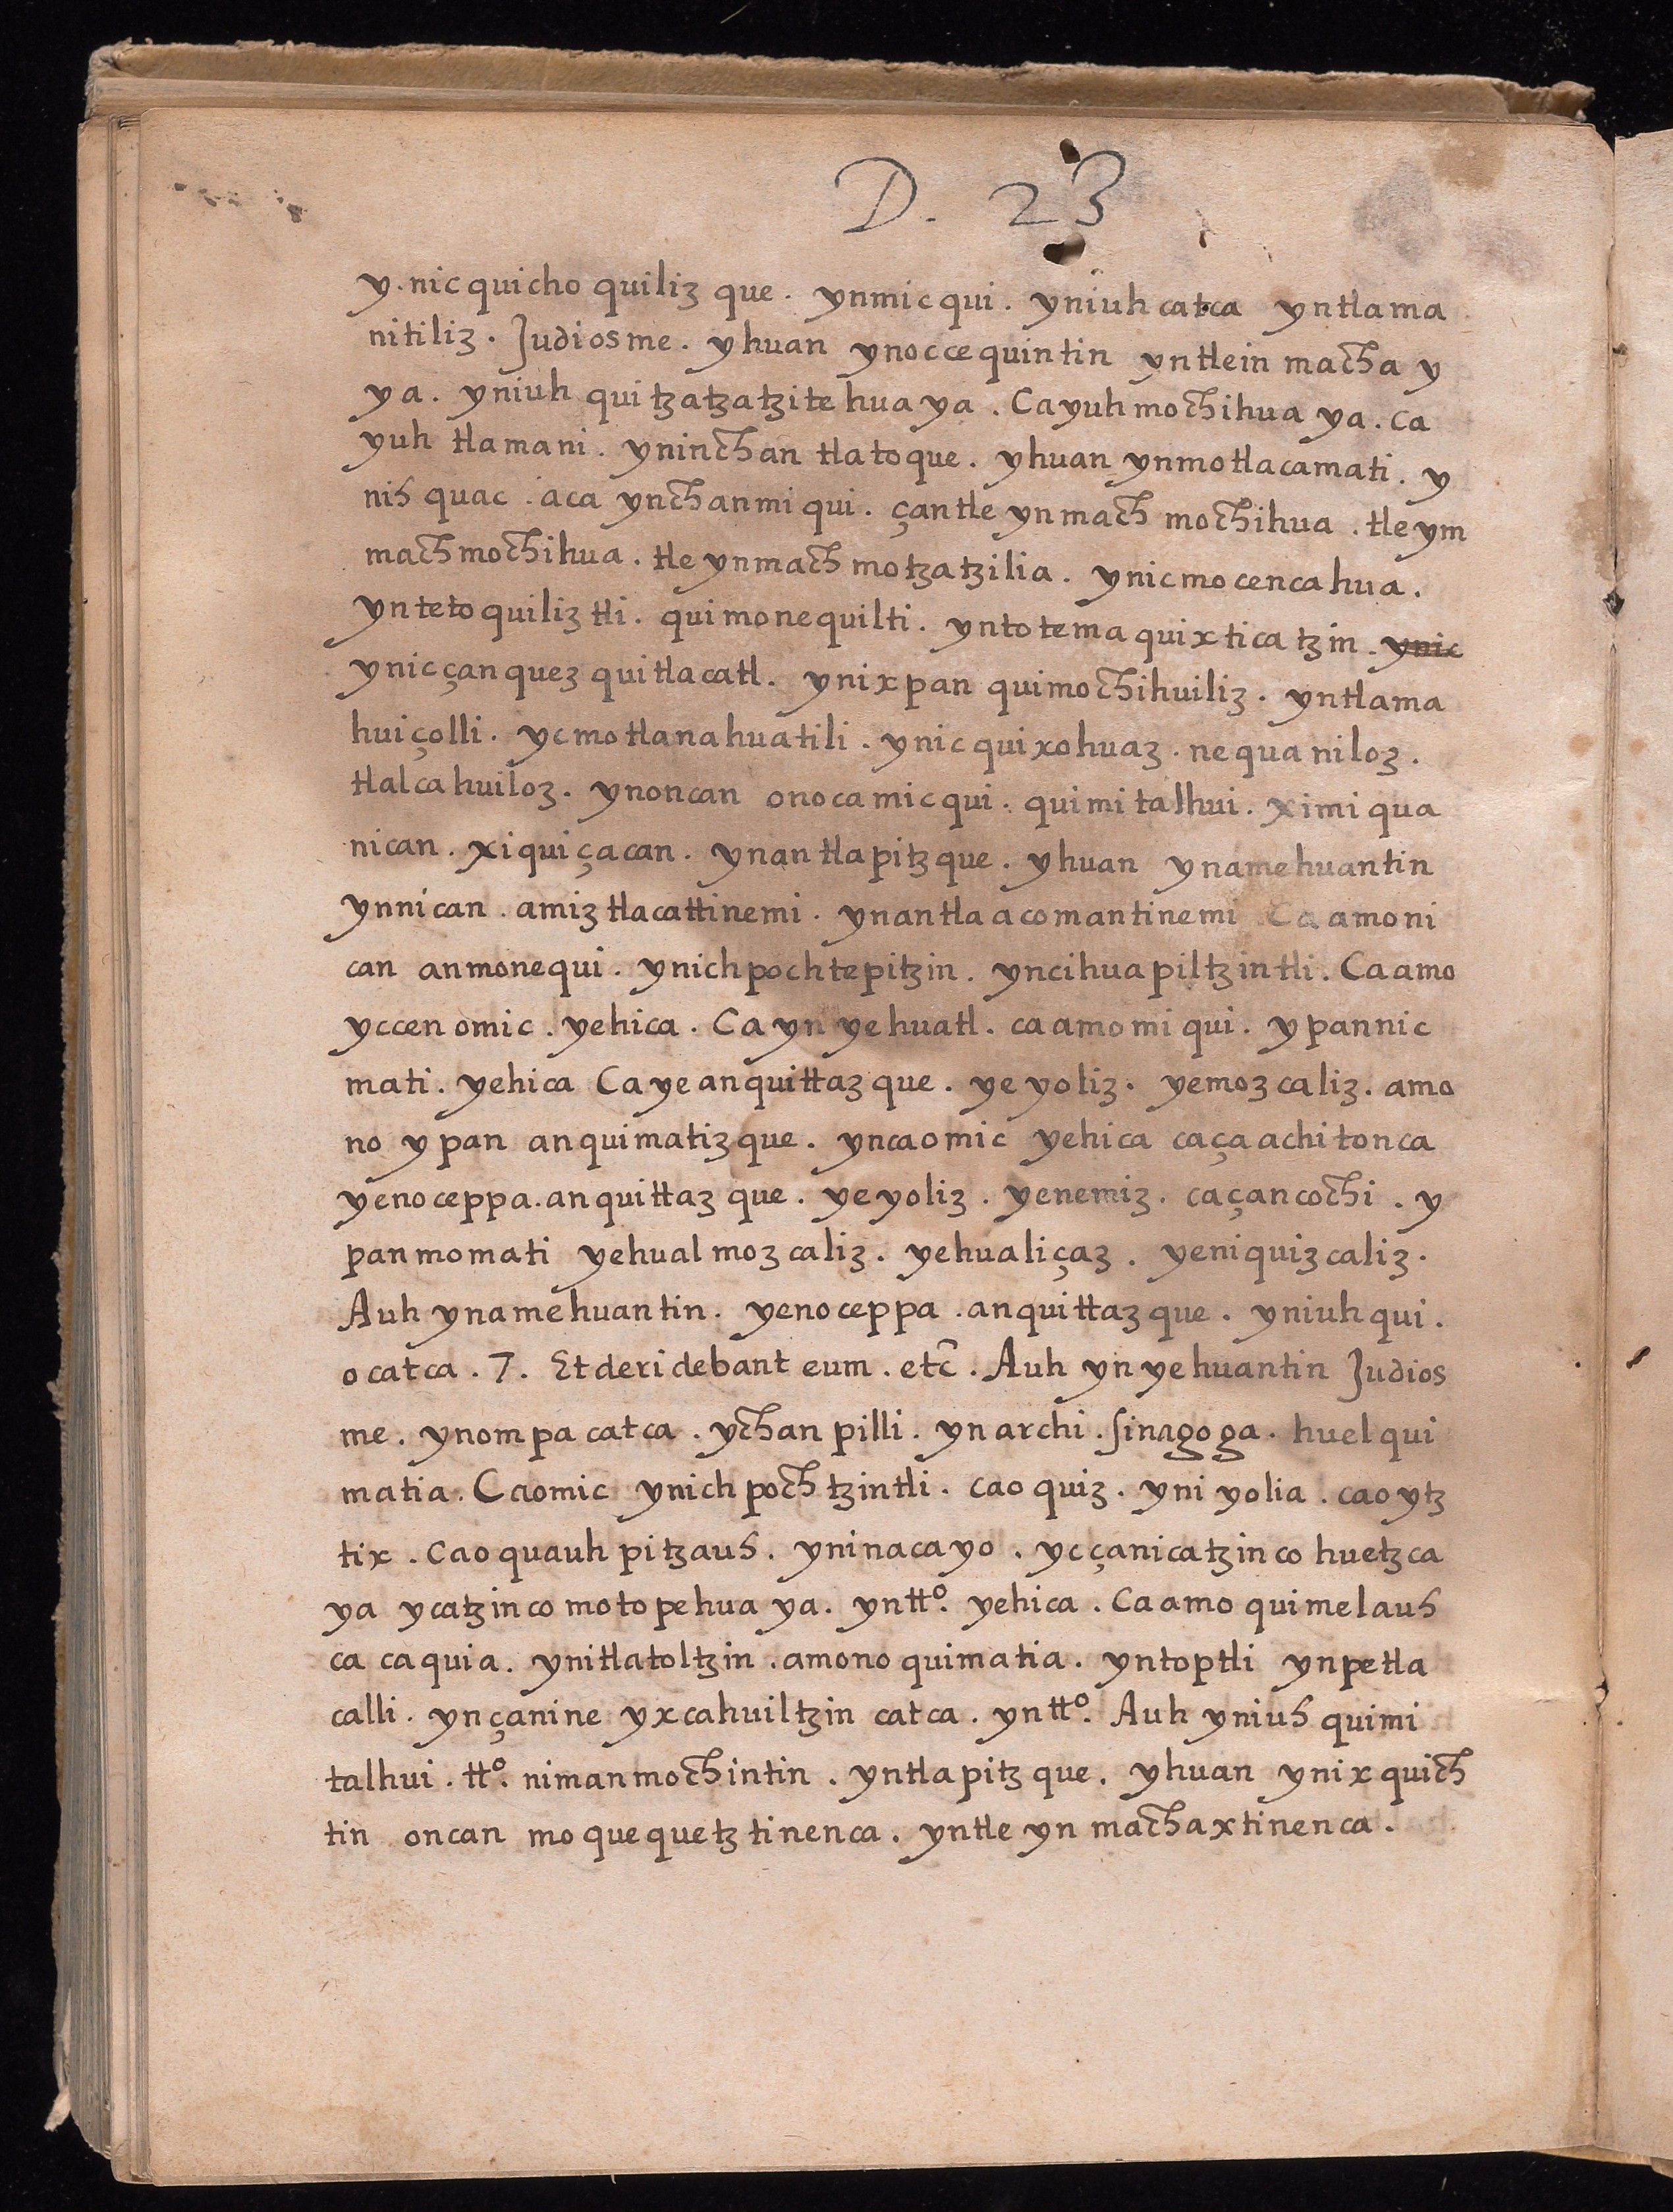 D. 23
y. nic quicho quiliz que. ynmic qui. yniuh catca yntlama
nitiliz. Judiosme. yhuan ynoccequintin yntlein macha y
ya. yniuh qui tzatzatzite hua ya. Ca yuh mochihua ya. ca
yuh tlamani. yninchan tlatoque. yhuan ynmotlacamati. y
nih quac. aca ynchanmi qui. çantle ynmach mochihua. tle ym
mach mochihua. tle ynmach motzatzilia. ynic mo cenca hua.
yn teto quiliz tli. qui mo nequilti. ynto tema quixtica tzin. ynic
ynic çan quez qui tlacatl. ynixpan quimochihuiliz. yntlama
huiçolli. yc mo tlanahuatili. ynic quixohuaz. ne qua niloz.
tlalcahuiloz. ynoncan onoca mic qui. qui mi talhui. ximi qua
nican. xi qui çacan. ynan tlapitz que. yhuan ynamehuantin
ynnican. amiz tlacattinemi. ynantla acomantinemi Ca amo ni
can anmonequi. ynichpochtepitzin. yncihuapiltzintli. Ca amo
yccen omic. yehica. Ca yn yehuatl. ca amo mi qui. ypannic
mati. yehica Ca ye anquittaz que. ye yoliz. yemoz caliz. amo
no ypan anquimatiz que. yncaomic yehica caça achi tonca
yenoceppa. anquittaz que. ye yoliz. yenemiz. caçancochi. y
pan momati yehual moz caliz. yehualiçaz. yeniquizcaliz.
Auh ynamehuantin. yenoceppa. anquittaz que. yniuh qui.
o catca. 7. Et deridebant eum. etc̄. Auh yn yehuantin Judios
me. ynompa catca. ychan pilli. yn archi. sinagoga. huel qui
matia. Caomic ynichpochtzintli. cao quiz. yni yolia. cao ytz
tix. Cao quauh pitzauh. yninacayo. yc çanicatzin co huetzca
ya ycatzinco motopehua ya. yn tt͞o. yehica. Ca amo quimelauh
ca caquia. ynitlatoltzin. amono quimatia. yntoptli ynpetla
calli. ynçanine yxcahuiltzin catca. yn tt͞o. Auh yniuh quimi
talhui. tt͞o. niman mochintin. yntlapitz que. yhuan ynixquich
tin oncan mo quequetz tinenca. yntle yn machaxtinenca.